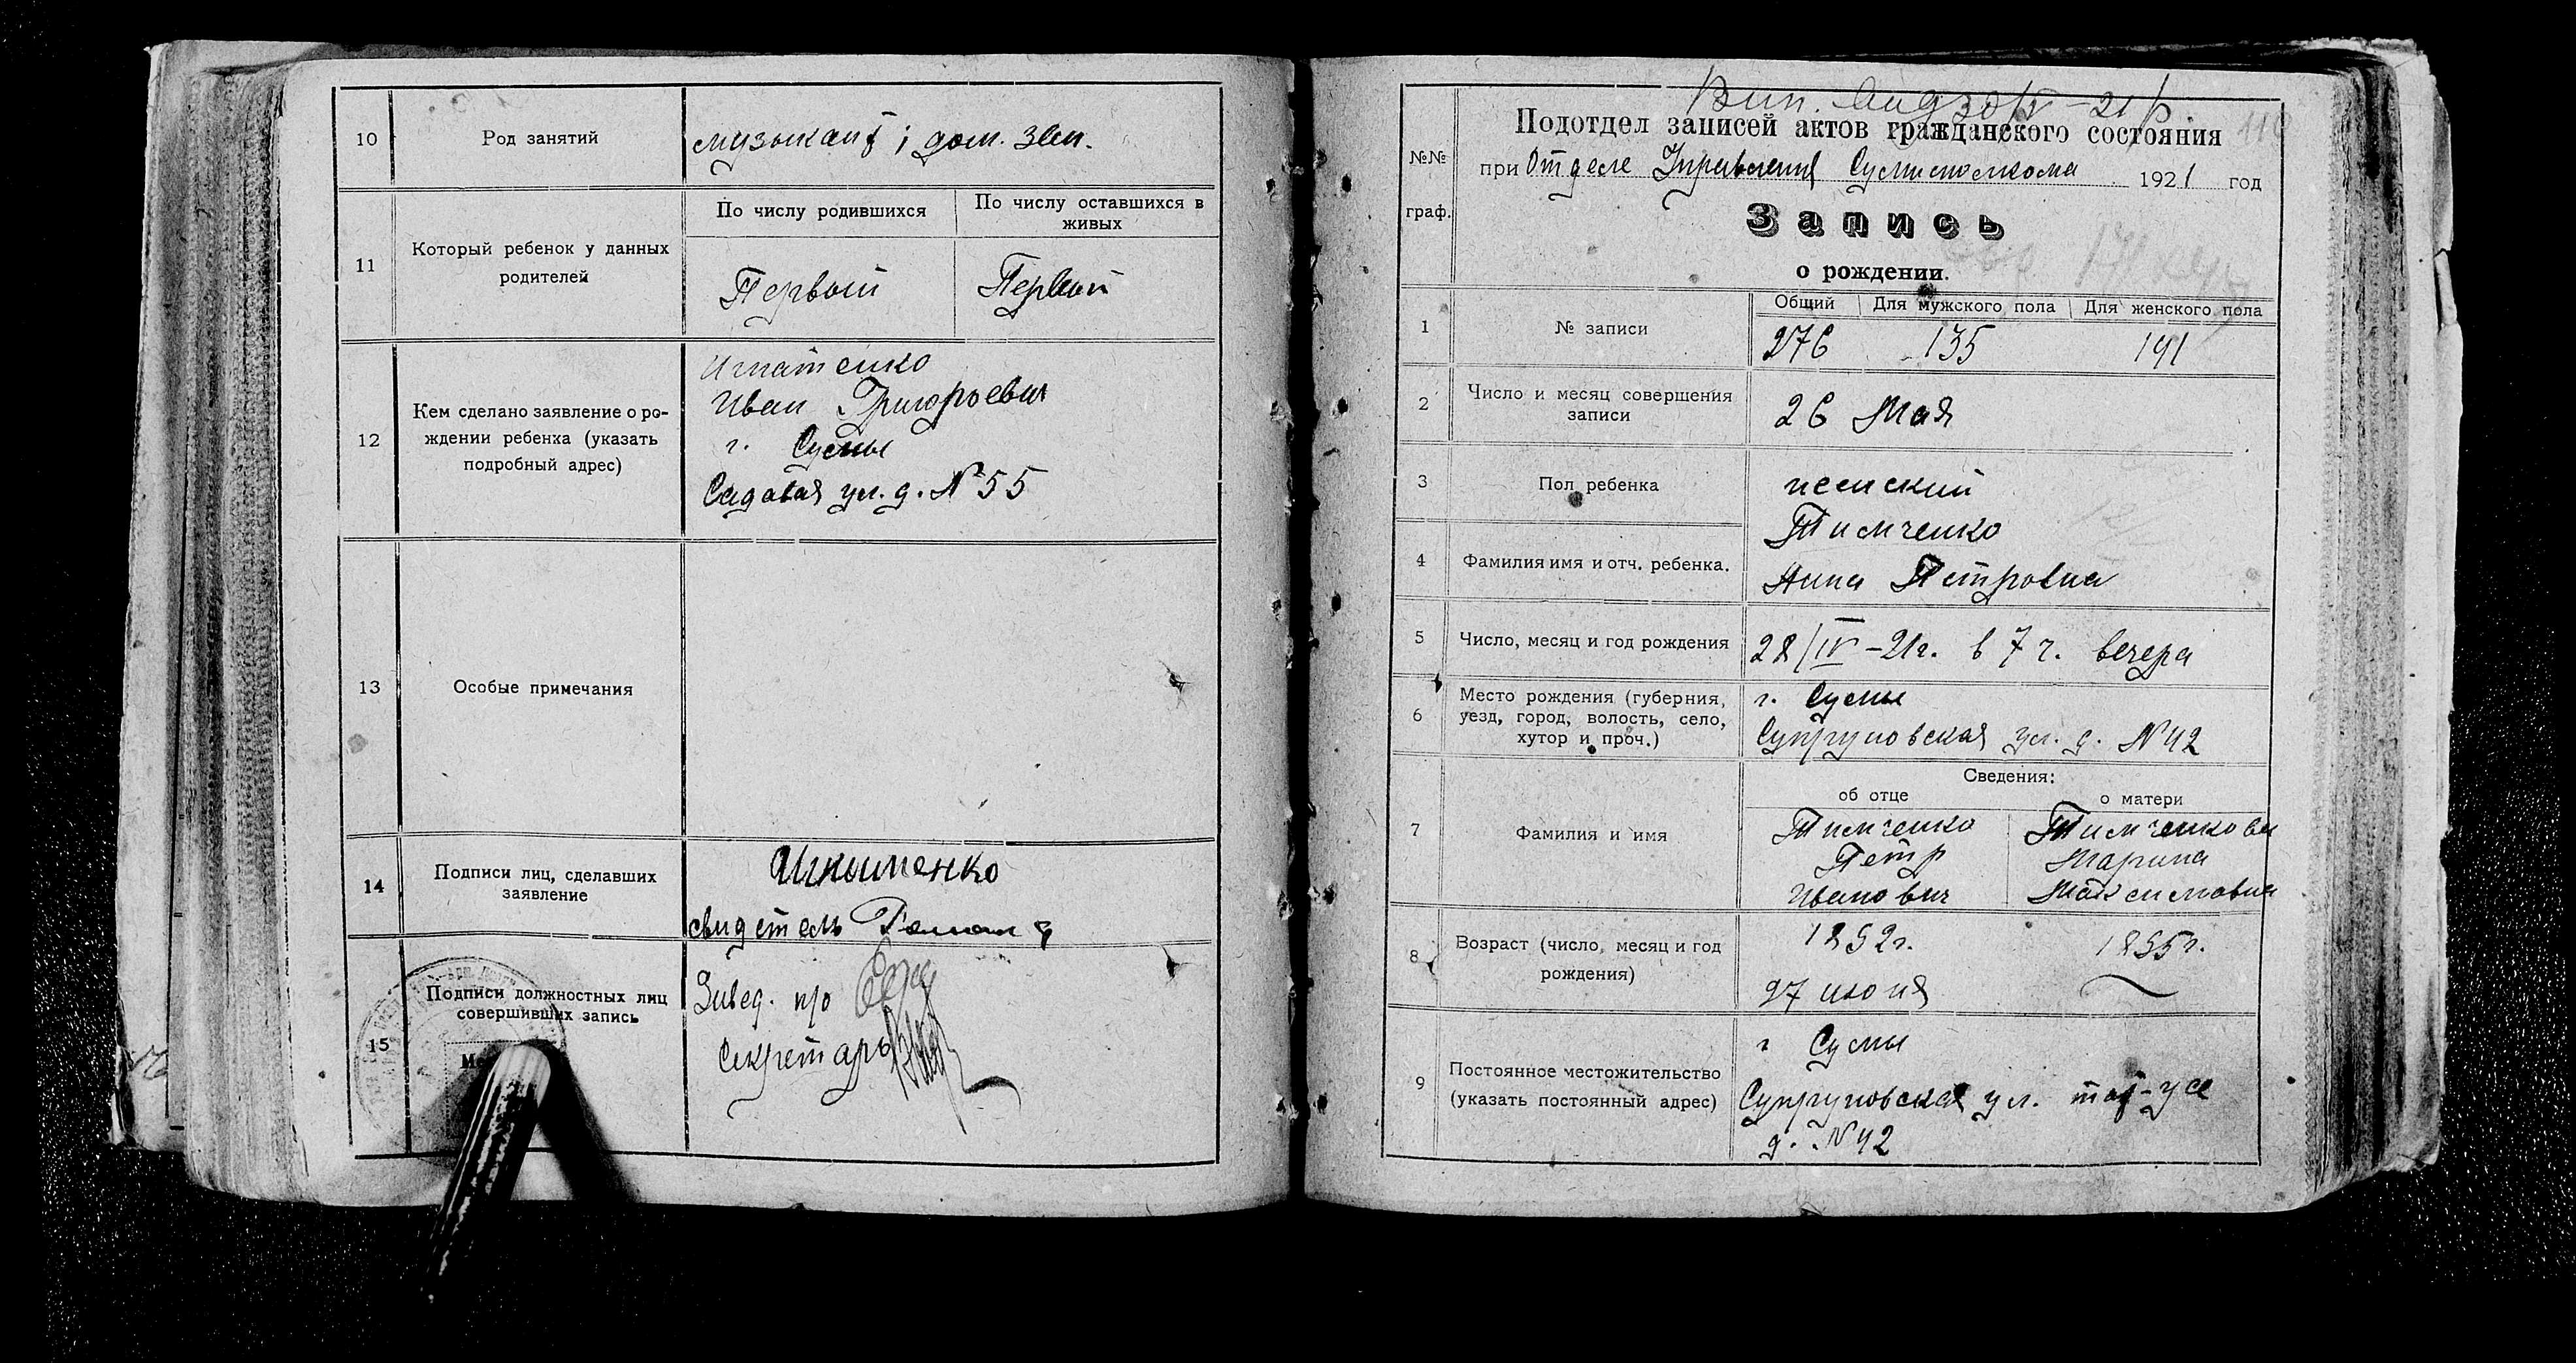 10
Род занятий
музыкант; дом. зан.
11
Который ребенок у данных
родителей
По числу родившихся
По числу оставшихся в
живых
Первый
Первый
12
Кем сделано заявление о ро-
ждении ребенка (указать
подробный адрес)
Игнатенко
Иван Григорьевич
г. Сумы
Садовая ул. д. №55
13
Особые примечания
14
Подписи лиц, сделавших
заявление
Игнатенко
свидетель
15
Подписи должностных лиц
совершивших запись
М
Завед. п/о
Секретарь
№№
граф.
Вип. 21 р.
110
Подотдел записей актов гражданского состояния
при Отделе Управления Сумисполкома 1921 год
Запись
о рождении.
1
№ записи
Общий
Для мужского пола
Для женского пола
276
135
141
2
Число и месяц совершения
записи
26 Мая
3
Пол ребенка
женский
4
Фамилия имя и отч. ребенка.
Тимченко
Анна Петровна
5
Число, месяц и год рождения
28/IV-21г. в 7 ч. вечера
6
Место рождения (губерния,
уезд, город, волость, село,
хутор и проч.)
г. Сумы
Супруновская ул. д. №42
7
Фамилия и имя
Сведения:
об отце
о матери
Тимченко
Петр
Иванович
Тимченкова
Марина
Максимовна
8
Возраст (число, месяц и год
рождения)
1892г.
27 июня
1895г.
9
Постоянное местожительство
(указать постоянный адрес)
г Сумы
Супруновская ул.
д. №42